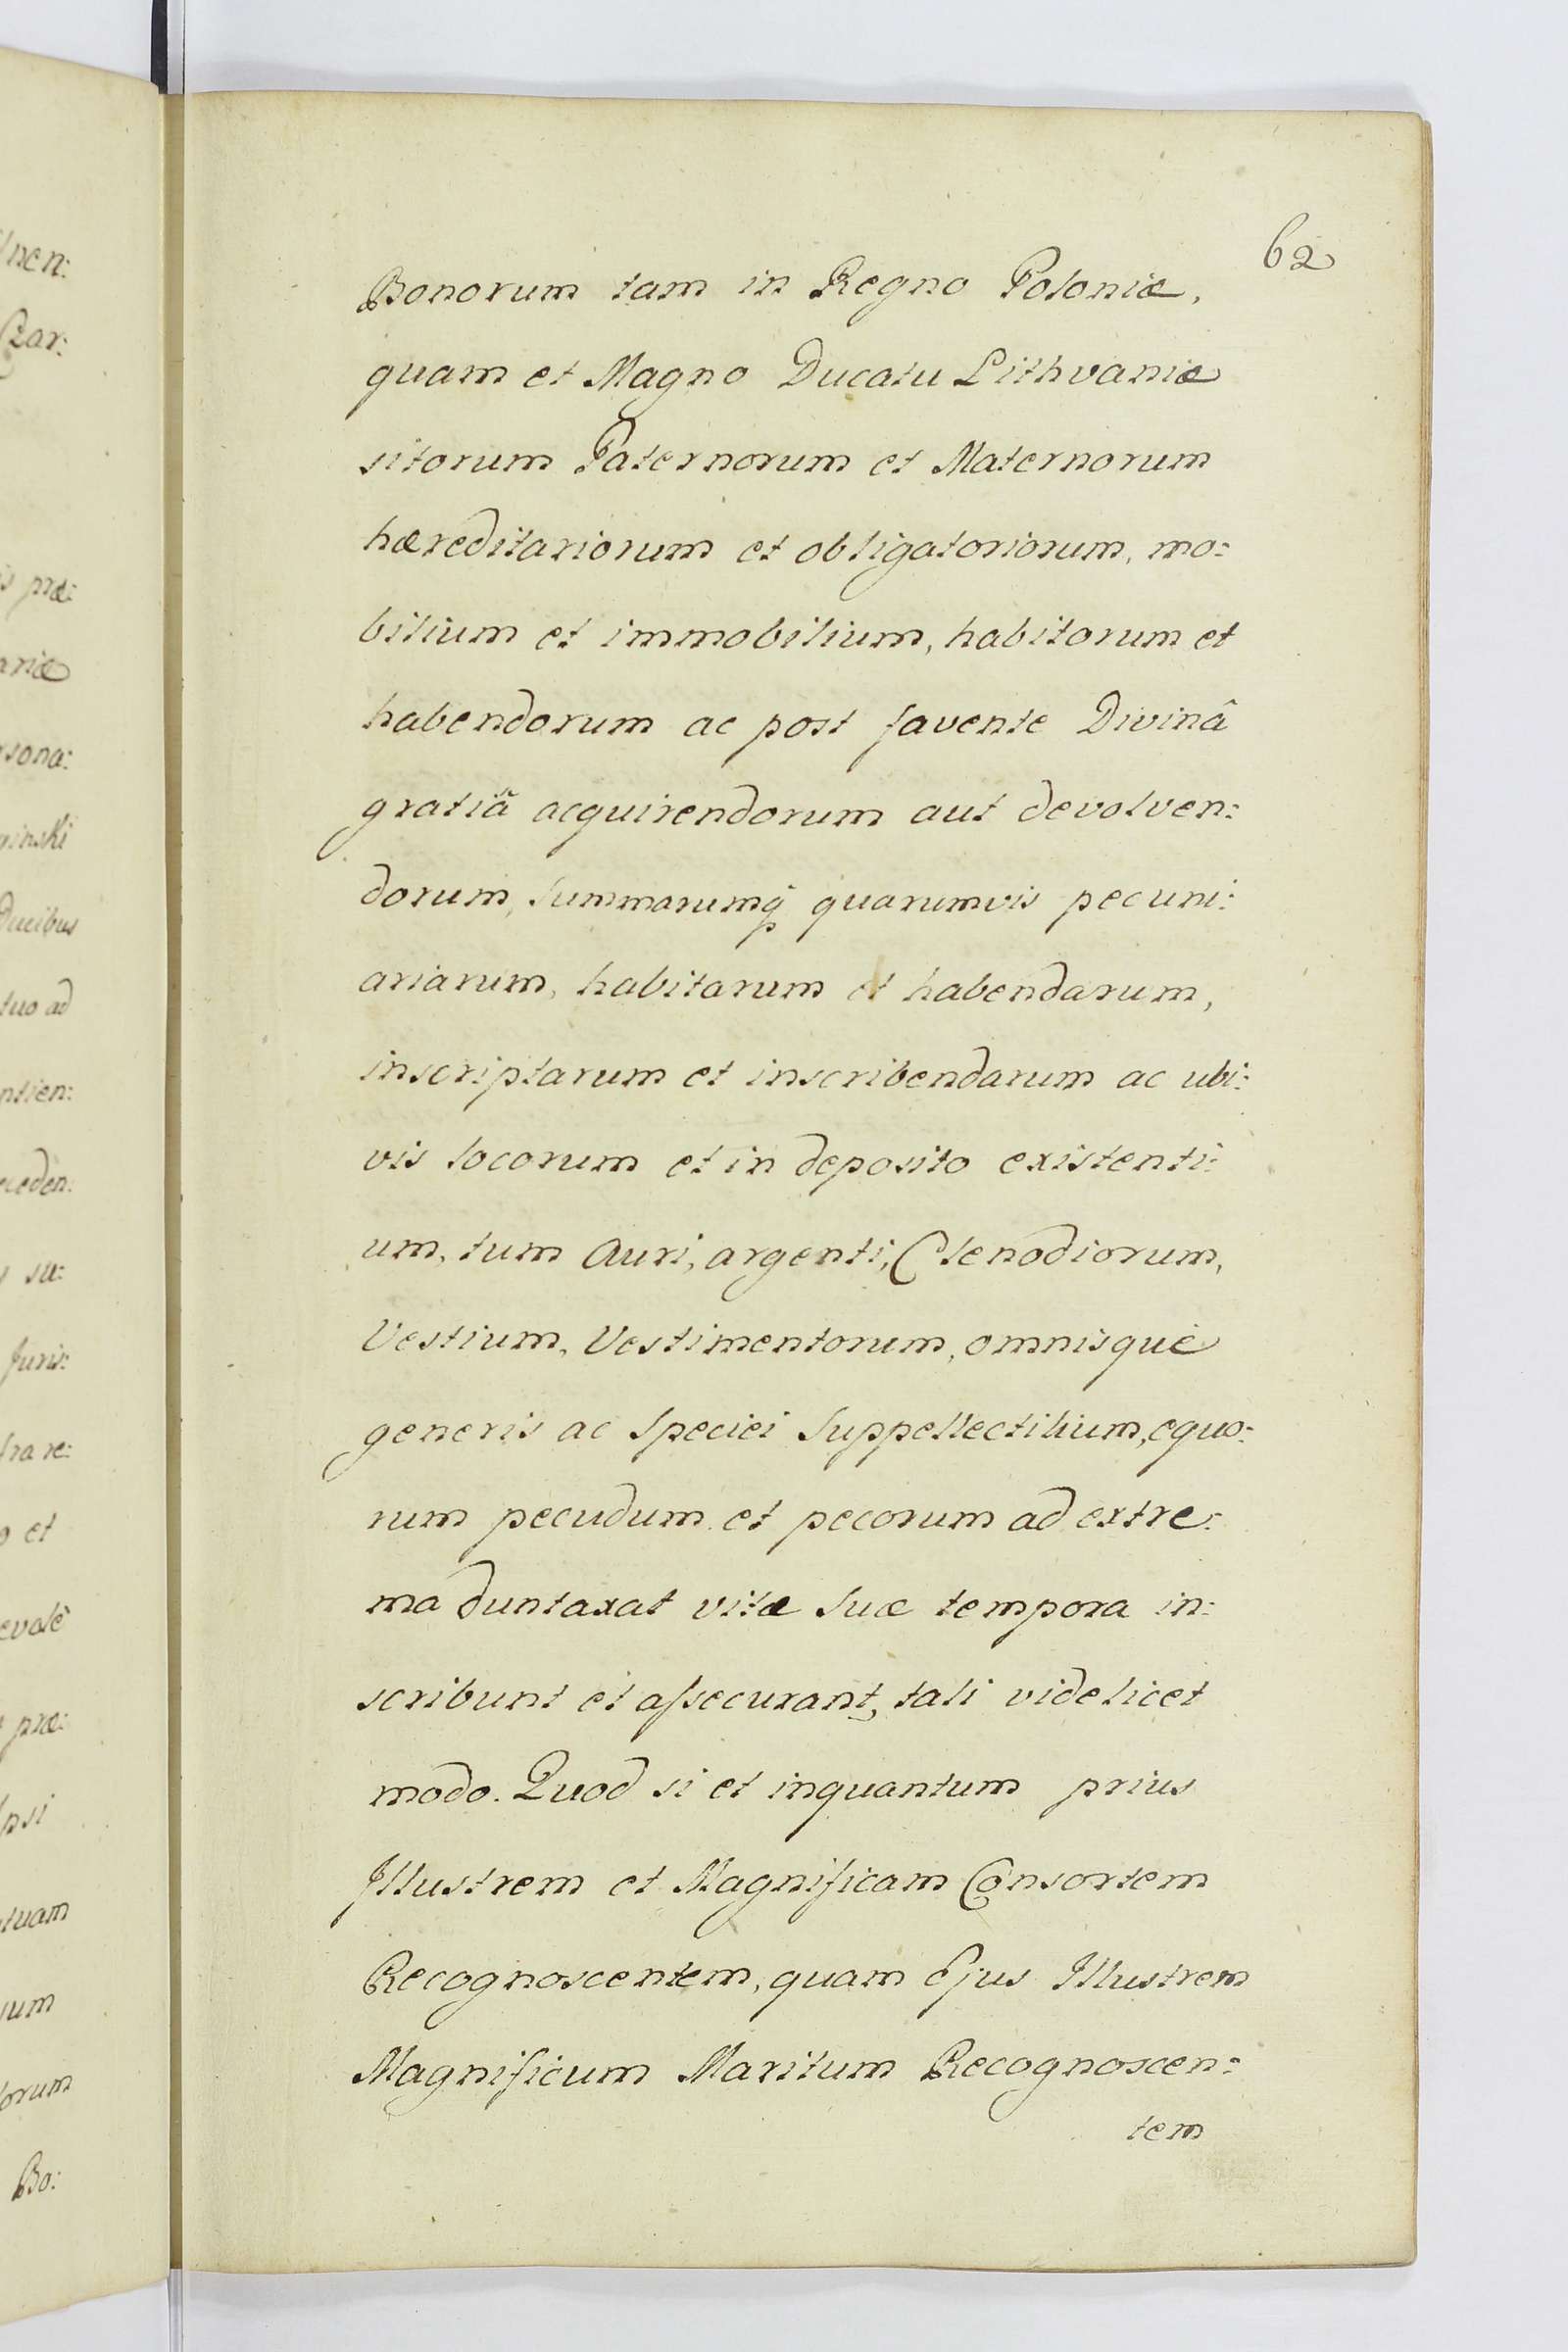 62
Bonorum tam in Regno Poloniæ,
quam et Magno Ducatu Lithvaniæ
sitorum Paternorum et Maternorum
hæreditariorum et obligatoriorum, mo:
bilium et immobilium, habitorum et
habendorum ac post favente Divinâ
gratiâ acquirendorum aut devolven:
dorum, summarumq̃ quarumvis pecuni:
ariarum, habitarum et habendarum,
inscriptarum et inscribendarum ac ubi:
vis locorum et in deposito existenti:
um, tum Auri, argenti, Clenodiorum,
Vestium, Vestimentorum, omnisque
generis ac Speciei Suppellectilium, equo:
rum pecudum et pecorum ad extre:
ma duntaxat vitæ suæ tempora in:
scribunt et aſsecurant, tali videlicet
modo. Quod si et inquantum prius
Illustrem et Magnificam Consortem
Recognoscentem, quam Ejus Illustrem
Magnificum Maritum Recognoscen:
tem
nen:
Czar:
præ:
ariæ
sona:
ginski
Ducibus
tuo ad
ntien:
ceden:
su:
Juris:
tra re:
et
evolè
præ:
Ipsi
tuam
ium
lorum
Bo: